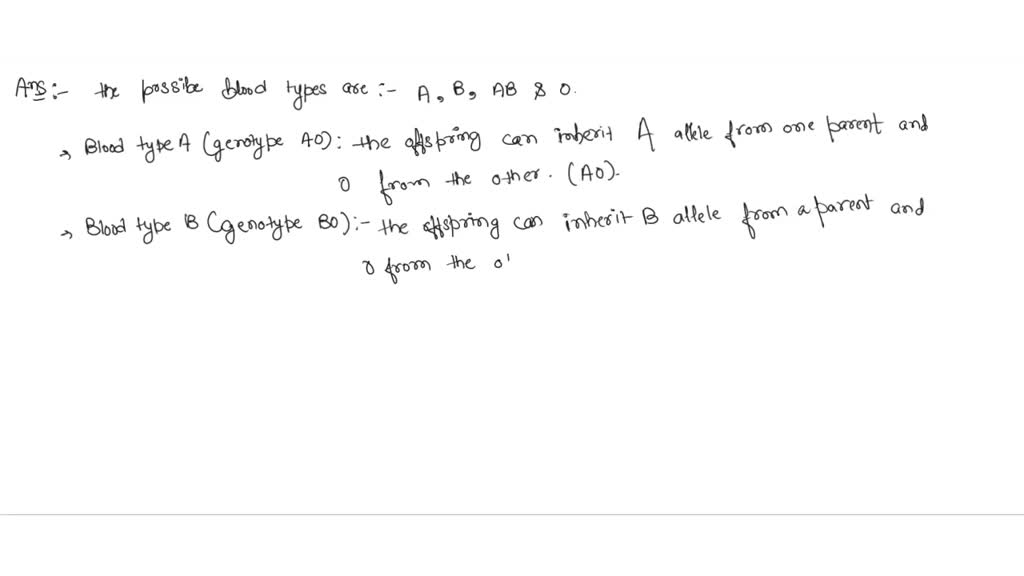 Ans:- the possibe blood types are :- A, B, AB & O.
→ Blood type A (genotype AO): the offspring can inherit A allele from one parent and
O from the other. (AO).
→ Blood type B (genotype BO):- the offspring can inherit B allele from a parent and
O from the o'